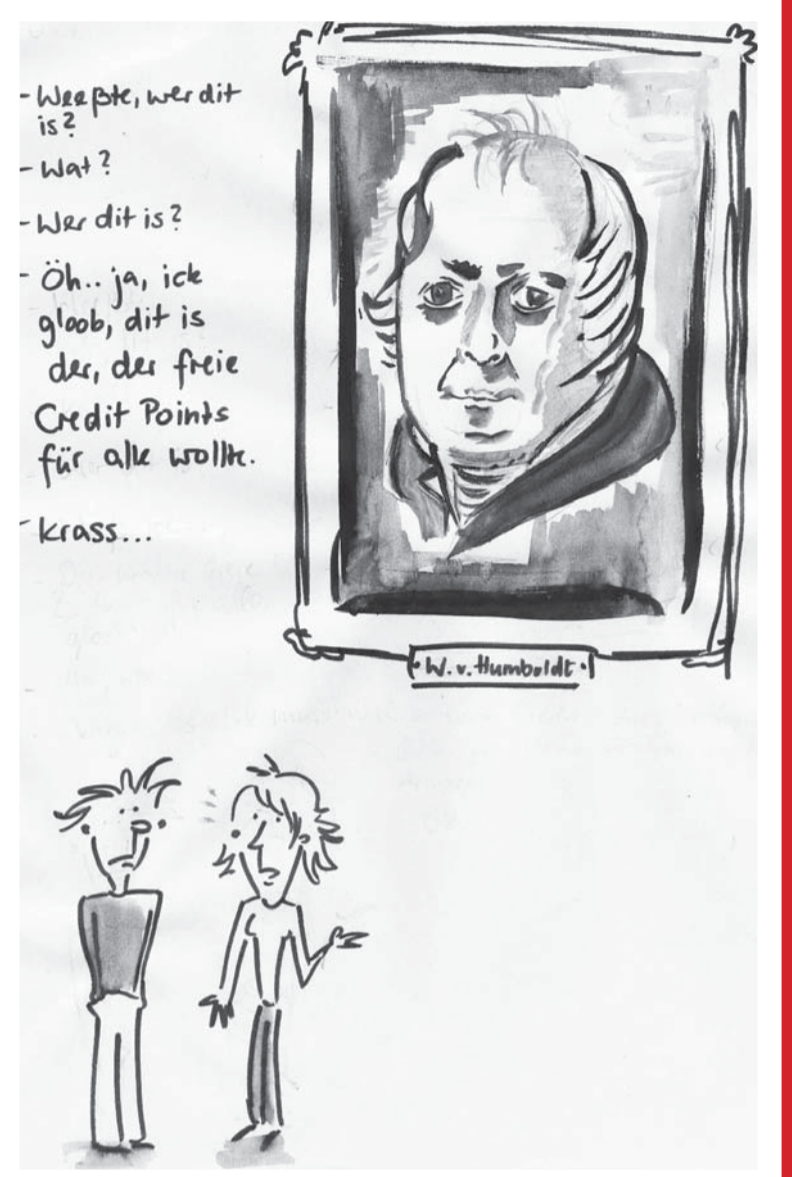 - Weeßte, wer dit
is?
- Wat?
- Wer dit is?
- Öh.. ja, ick
gloob, dit is
der, der freie
Credit Points
für alle wollte.
- krass...
W. v. Humboldt